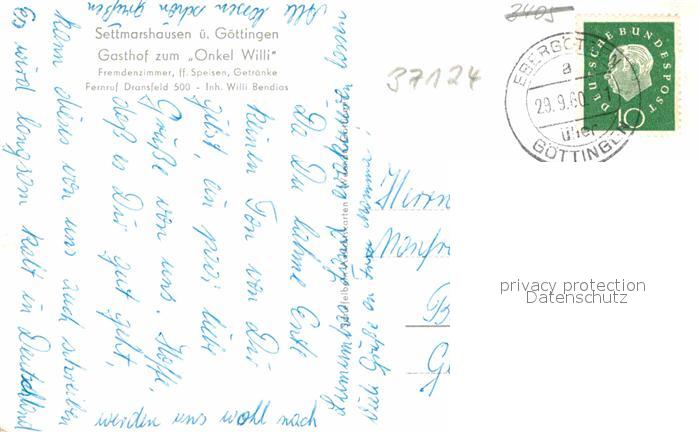 Settmarshausen ü. Göttingen
Gasthof zum „Onkel Willi"
Fremdenzimmer, ff. Speisen, Getränke
Fernruf Dransfeld 500 - Inh. Willi Bendias
3405
37124
EBERGÖTZ
a
29.9.60
über
GÖTTINGEN
DEUTSCHE BUNDESPOST
10
Da Du lahme Ente
keinen Ton von Dir
gibst, ein paar liebe
Grüße von uns. Hoffe,
daß es Dir gut geht,
kann dieses von uns auch schreiben
Es wird langsam kalt in Deutschland
werden uns wohl nach
Alle lassen schön grüßen
viele Grüße an
Herrn
Manfr
B
G
privacy protection
Datenschutz